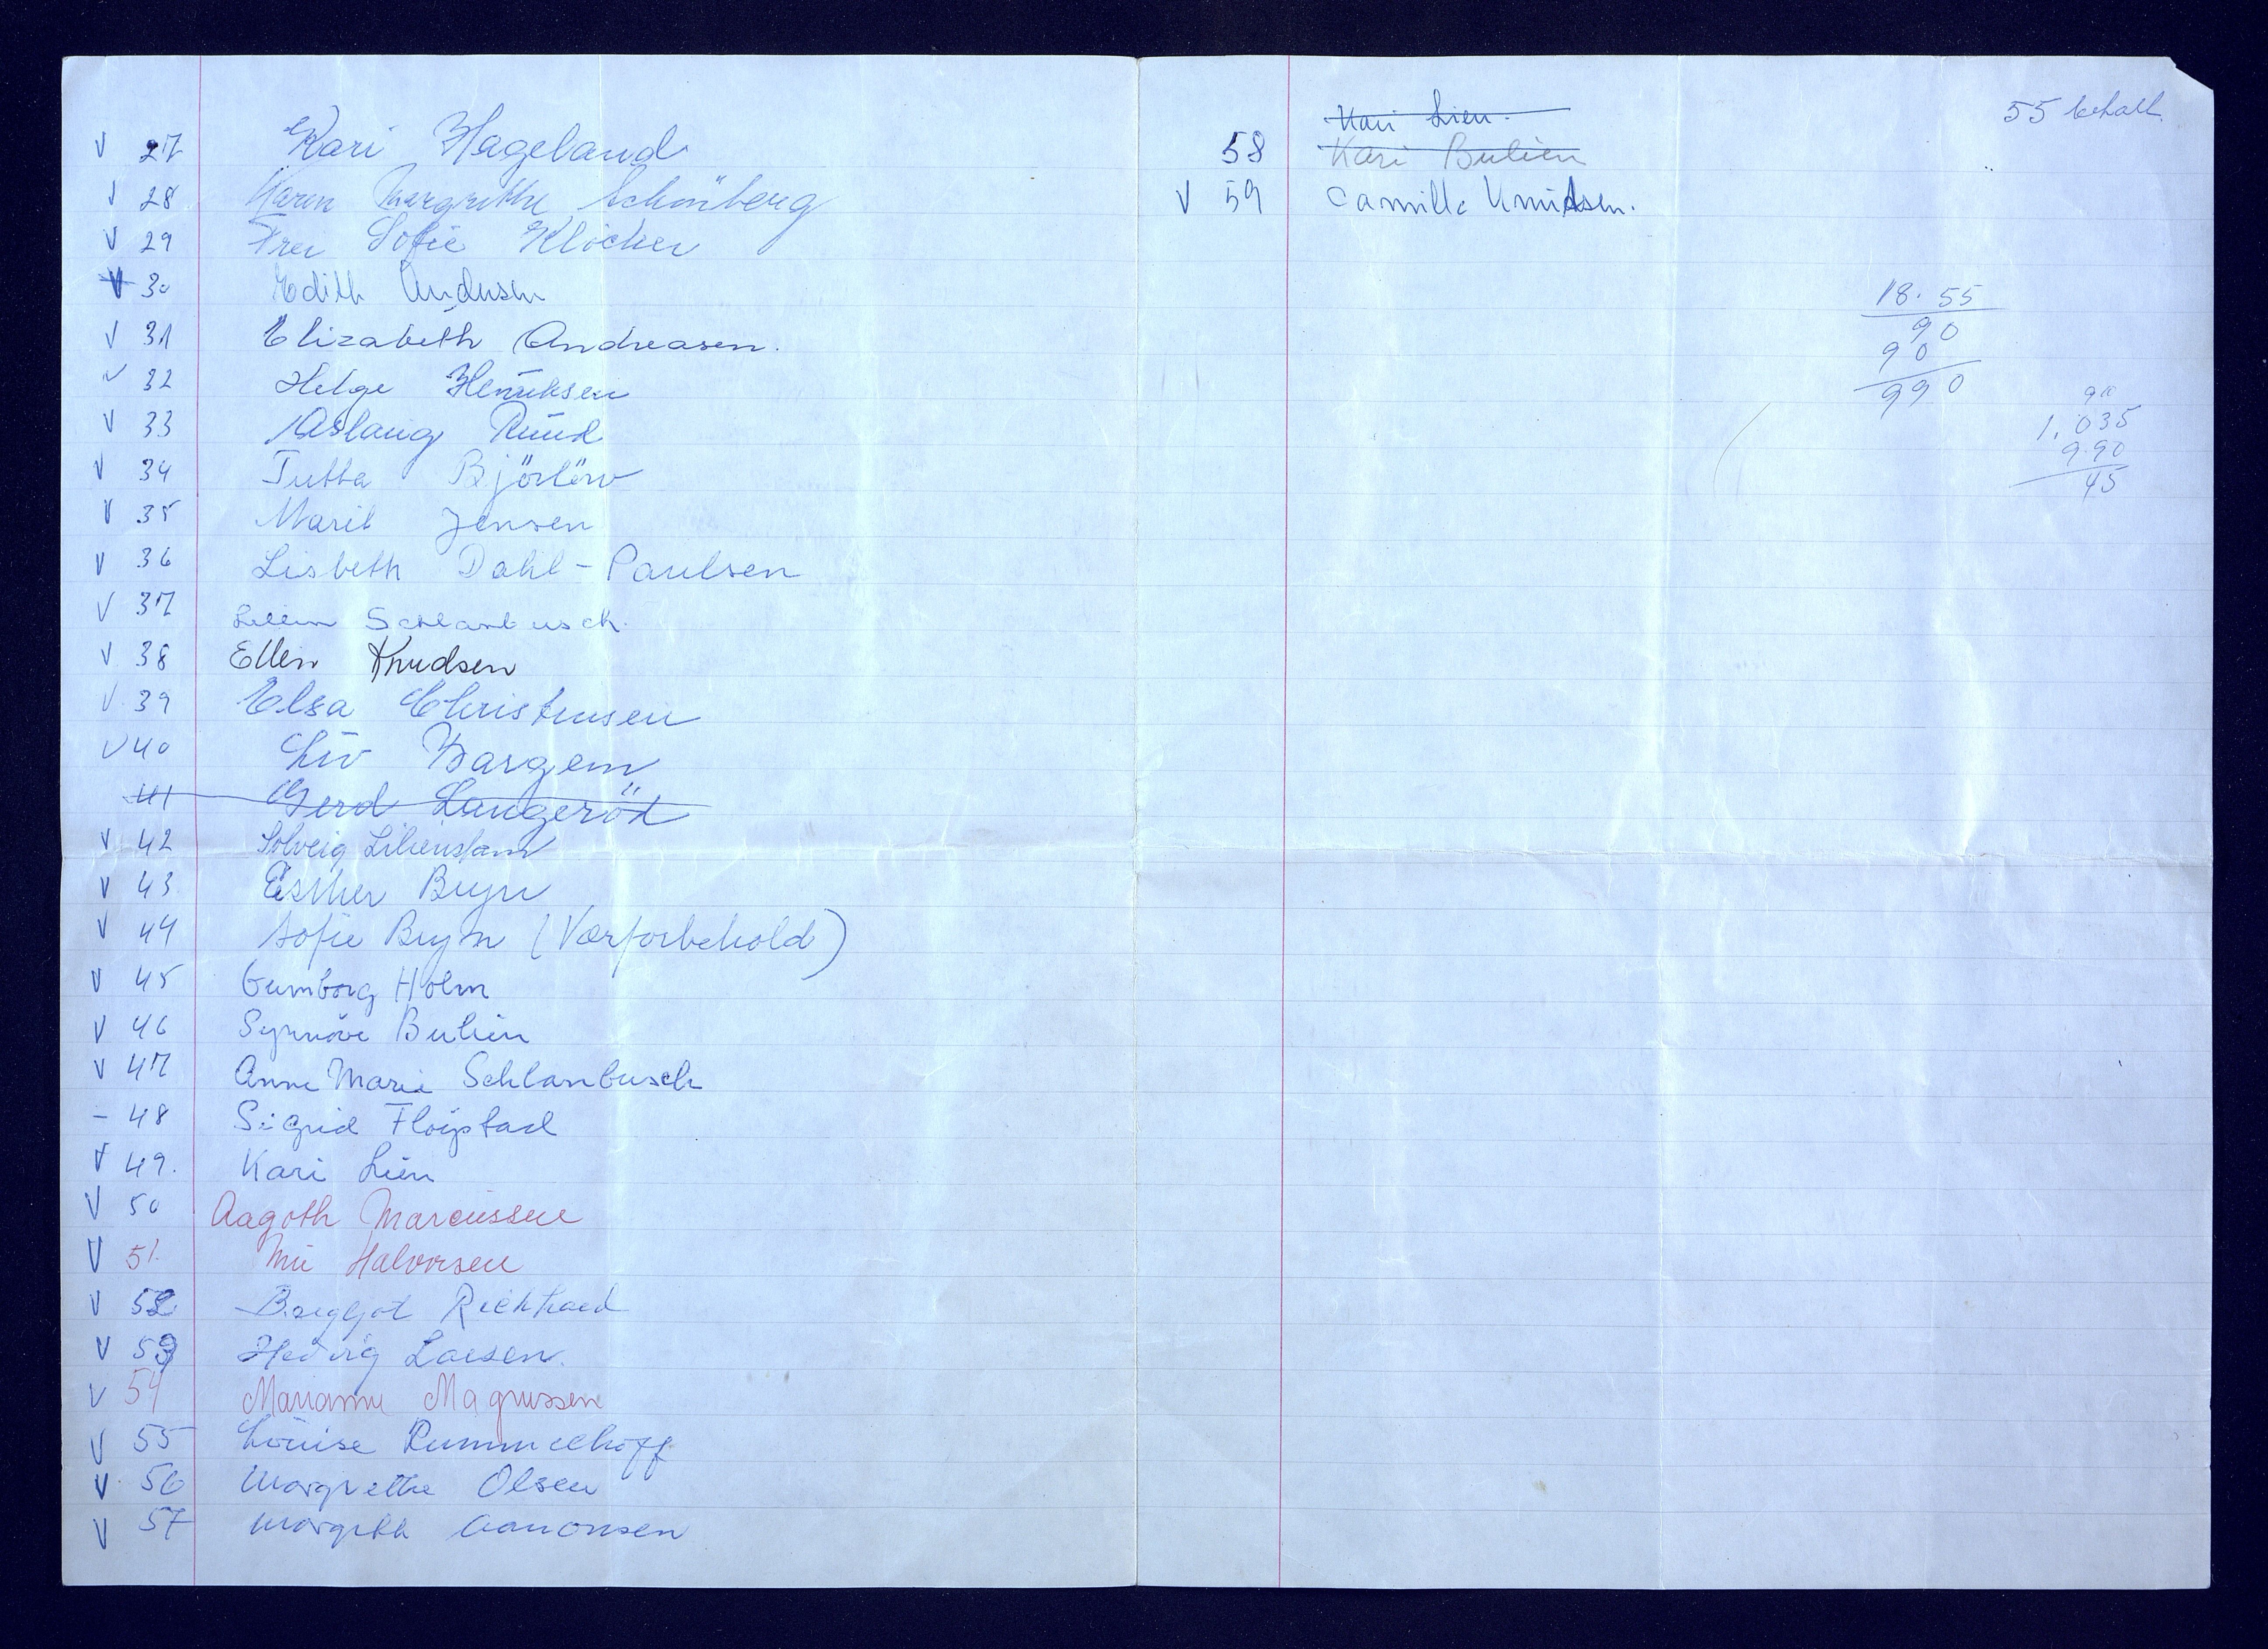 V 27 Kari Hageland
V 28 Karen Margrethe Schönberg
V 29 Frei Sofie Klöcker
V 30 Edith Andersen
V 31 Elizabeth Andreasen.
V 32 Helge Henriksen
V 33 Aslaug Ruud
V 34 Tutta
V 35 Marit Jensen
V 36 Lisbeth Dahl-Paulsen
V 37 Schlanbusch.
V 38 Ellen Knudsen
V 39 Elsa Christensen
V 40 Liv
41 Gerd Langeröd
V 42 Solveig
V 43 Esther Bryn
V 44 Sofie Bryn (Værforbehold)
V 45 Gunborg Holm
V 46 Synnöve Bulien
V 47 Anne Marie Schlanbusch
- 48 Sigrid Flöystad
V 49. Kari Lien
V 50 Aagoth Marcussen
V 51. Halvorsen
V 52
V 53 Hedvig Larsen.
V 54 Marianne Magnussen
V 55 Louise Rummelhoff
V 56 Margrethe Olsen
V 57 Margith Aanonsen
Kari Lien.
58 Kari Bulien
V 59 Camilla Knudsen.
55 betalt.
18. 55
90
90
990
90
1.035
9.90
45